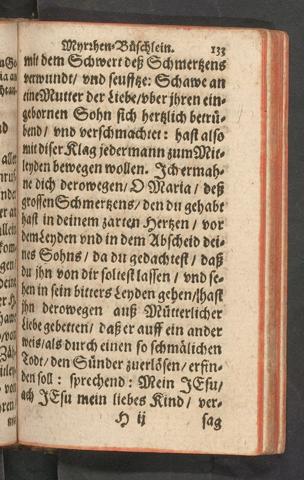 Myrrhen-Büschlein. 133
mit dem Schwert deß Schmertzens
verwundt/ vnd seufftze: Schawe an
eine Mutter der Liebe/ vber jhren ein-
gebornen Sohn sich hertzlich betrü-
bend/ vnd verschmachtet: hast also
mit diser Klag jedermann zum Mit-
leyden bewegen wollen. Ich ermah-
ne dich derowegen/ O Maria/ deß
grossen Schmertzens/ den du gehabt
hast in deinem zarten Hertzen/ vor
dem Leyden vnd in dem Abscheid dei-
nes Sohns/ da du gedachtest/ daß
du jhn von dir soltest lassen/ vnd se-
hen in sein bitters Leyden gehen/ hast
jhn derowegen auß Mütterlicher
Liebe gebetten/ daß er auff ein ander
weis/ als durch einen so schmälichen
Todt/ den Sünder zuerlösen/ erfin-
den soll: sprechend: Mein JEsu/
ach JEsu mein liebes Kind/ ver-
H ij sag